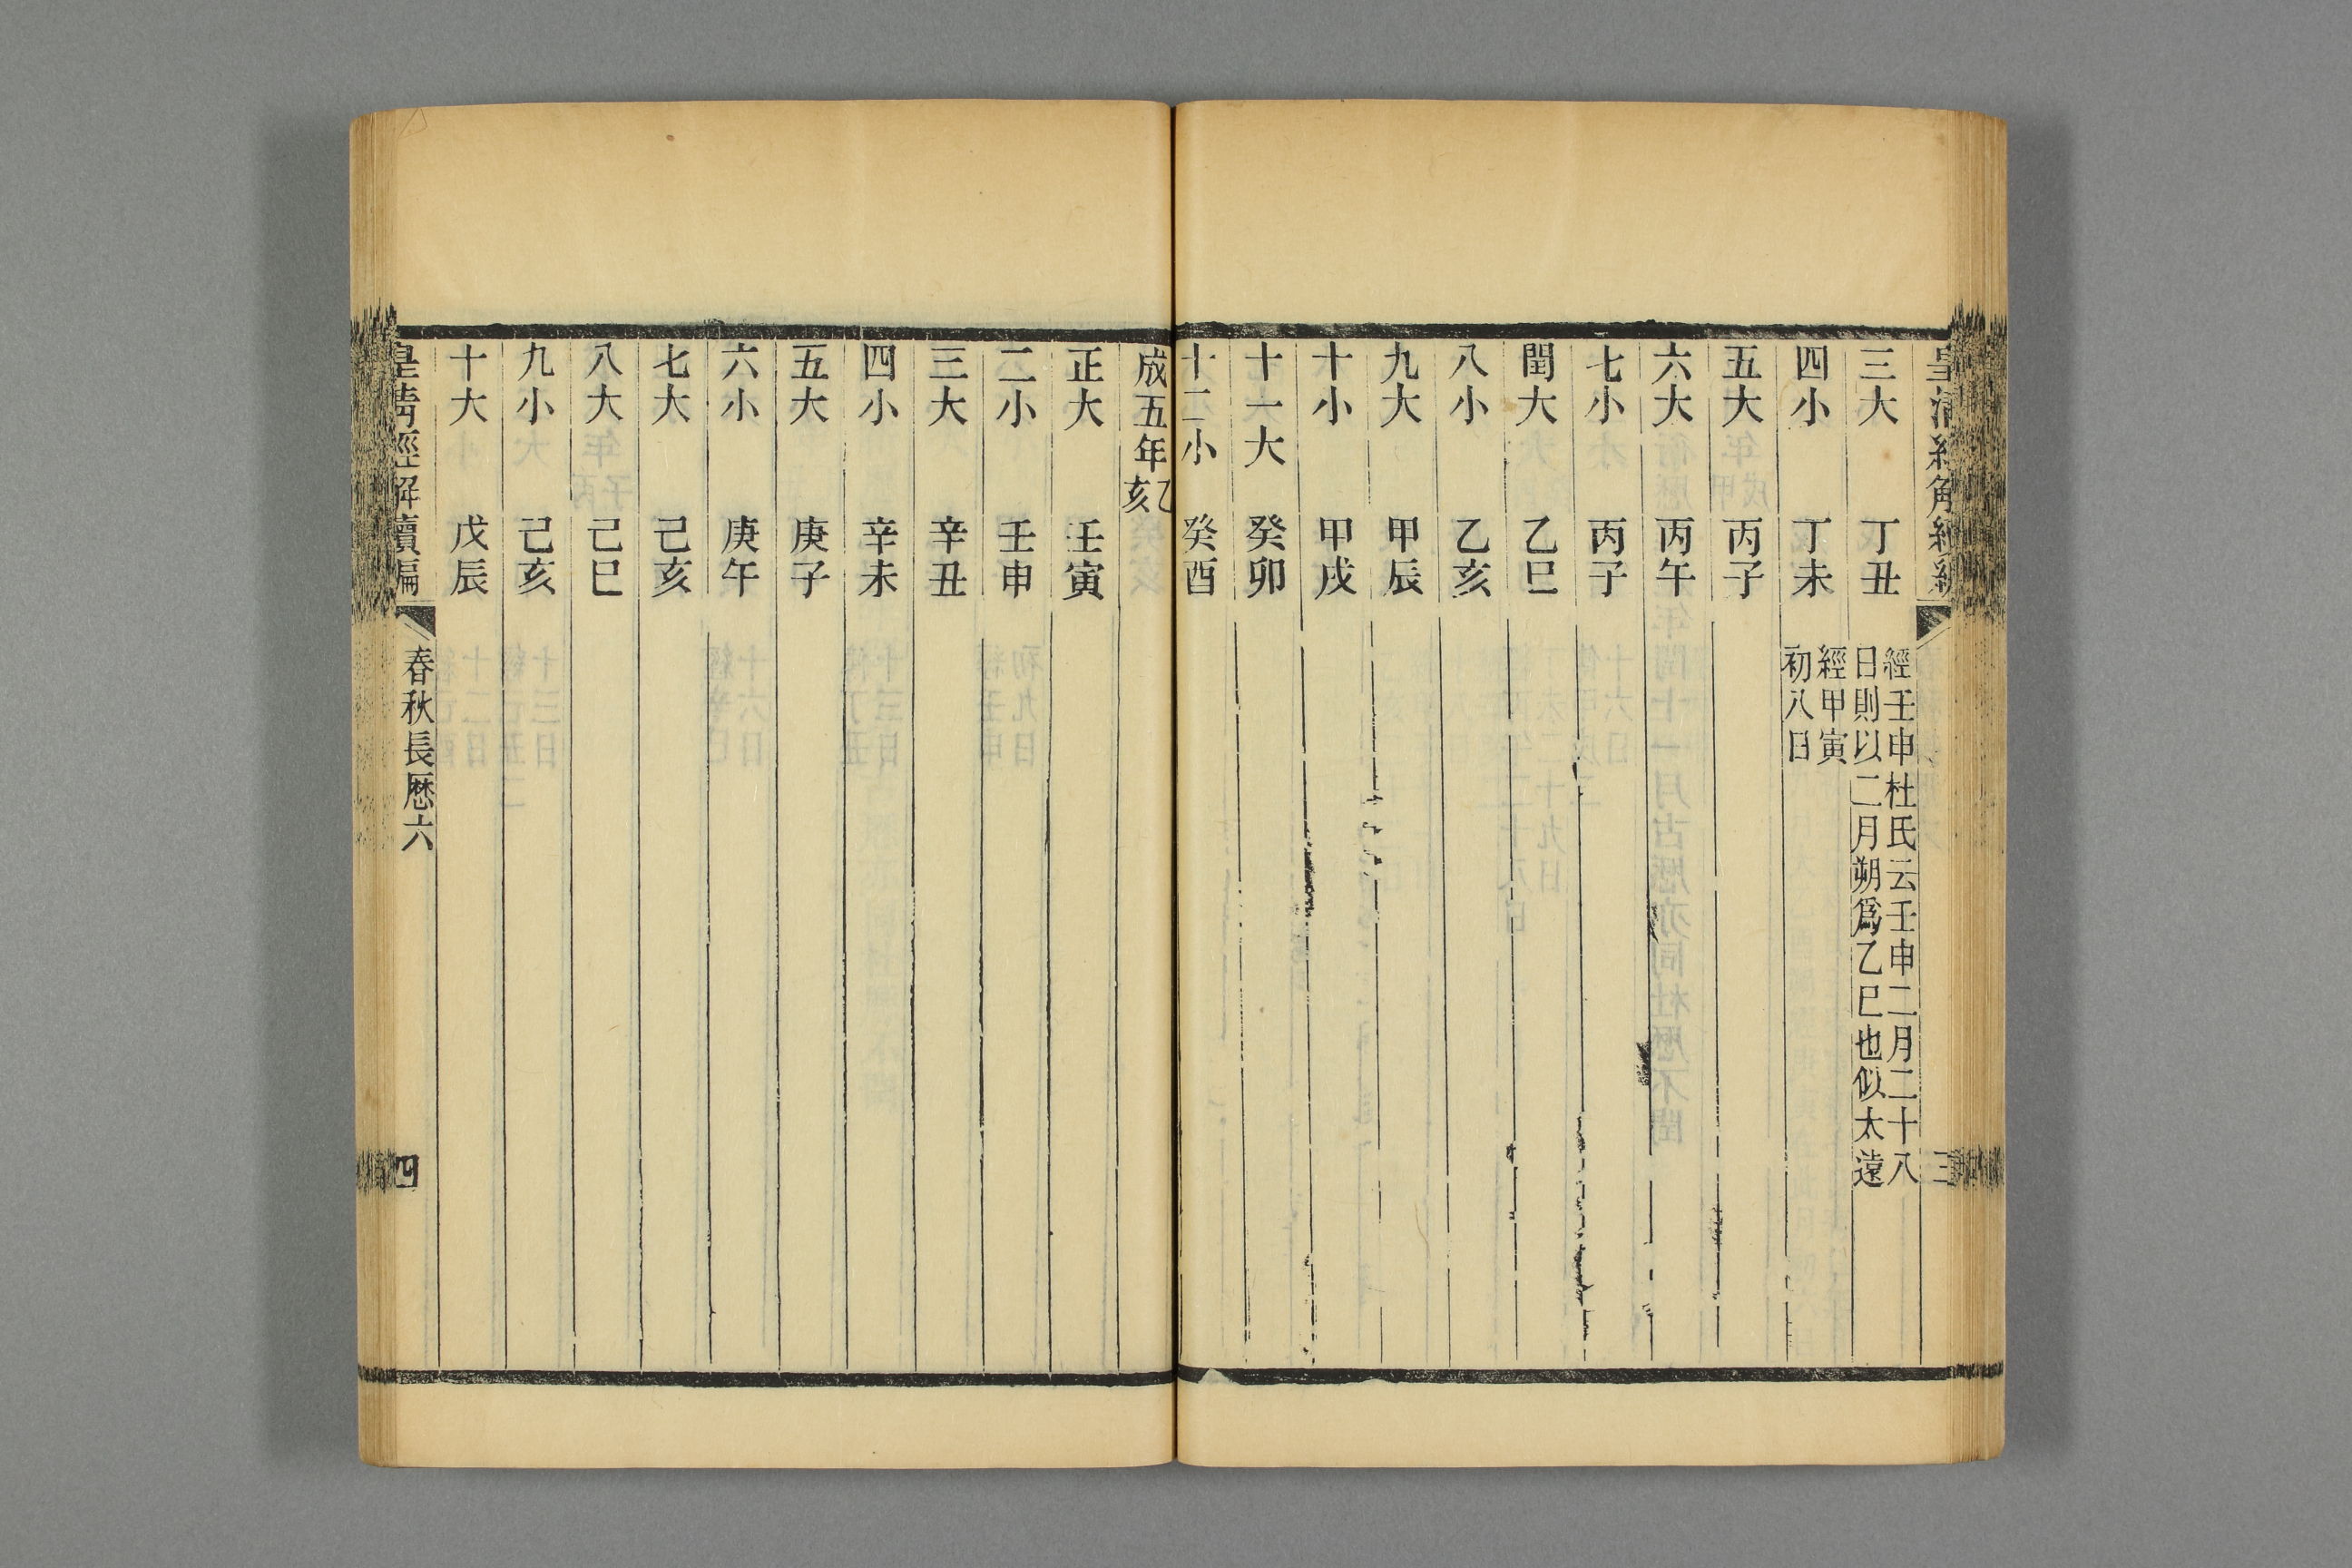 三大 丁丑 經壬申杜氏云壬申二月二十八
日則以二月朔爲乙巳也似太遠
四小 丁未 經甲寅
初八日
五大 丙子
六大 丙午
七小 丙子
閏大 乙巳
八小 乙亥
九大 甲辰
十小 甲戌
十一大 癸卯
十二小 癸酉
三
成五年乙亥
正大 壬寅
二小 壬申
三大 辛丑
四小 辛未
五大 庚子
六小 庚午
七大 己亥
八大 己巳
九小 己亥
十大 戊辰
皇清經解續編 春秋長厤六 四